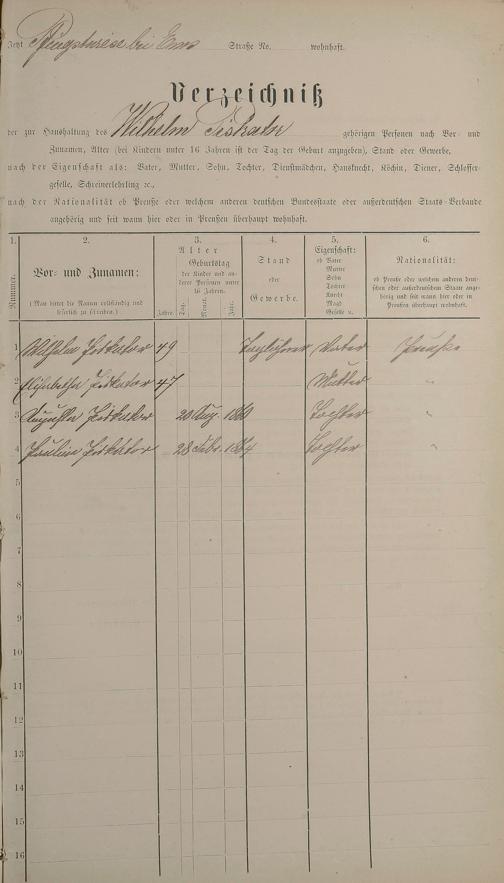 Jetzt Pfingstwiese bei Ems Straße No. wohnhaft.
Verzeichniß
der zur Haushaltung des Wilhelm Piskator gehörigen Personen nach Vor- und
Zunamen, Alter (bei Kindern unter 16 Jahren ist der Tag der Geburt anzugeben), Stand oder Gewerbe,
nach der Eigenschaft als: Vater, Mutter, Sohn, Tochter, Dienstmädchen, Hausknecht, Köchin, Diener, Schlosser-
geselle, Schreinerlehrling ꝛc.,
nach der Nationalität ob Preuße oder welchem anderen deutschen Bundesstaate oder außerdeutschen Staats-Verbande
angehörig und seit wann hier oder in Preußen überhaupt wohnhaft.
1. 2. 3. 4. 5. 6.
Nummer.
Vor- und Zunamen:
(Man bittet die Namen vollständig und
leserlich zu schreiben.)
Alter
Geburtstag
der Kinder und an-
derer Personen unter
16 Jahren.
Jahre. Tag. Monat. Jahr.
Stand
oder
Gewerbe.
Eigenschaft:
ob Vater
Mutter
Sohn
Tochter
Knecht
Magd
Geselle ꝛc.
Nationalität:
ob Preuße oder welchem anderen deut-
schen oder außerdeutschen Staate ange-
hörig und seit wann hier oder in
Preußen überhaupt wohnhaft.
1 Wilhelm Piskator 49 Taglöhner Vater Preuße
2 Elisabetha Piskator 47 Mutter "
3 Augusta Piskator 20 Aug. 1860 Tochter "
4 Paulina Piskator 28 Febr. 1864 Tochter "
5
6
7
8
9
10
11
12
13
14
15
16